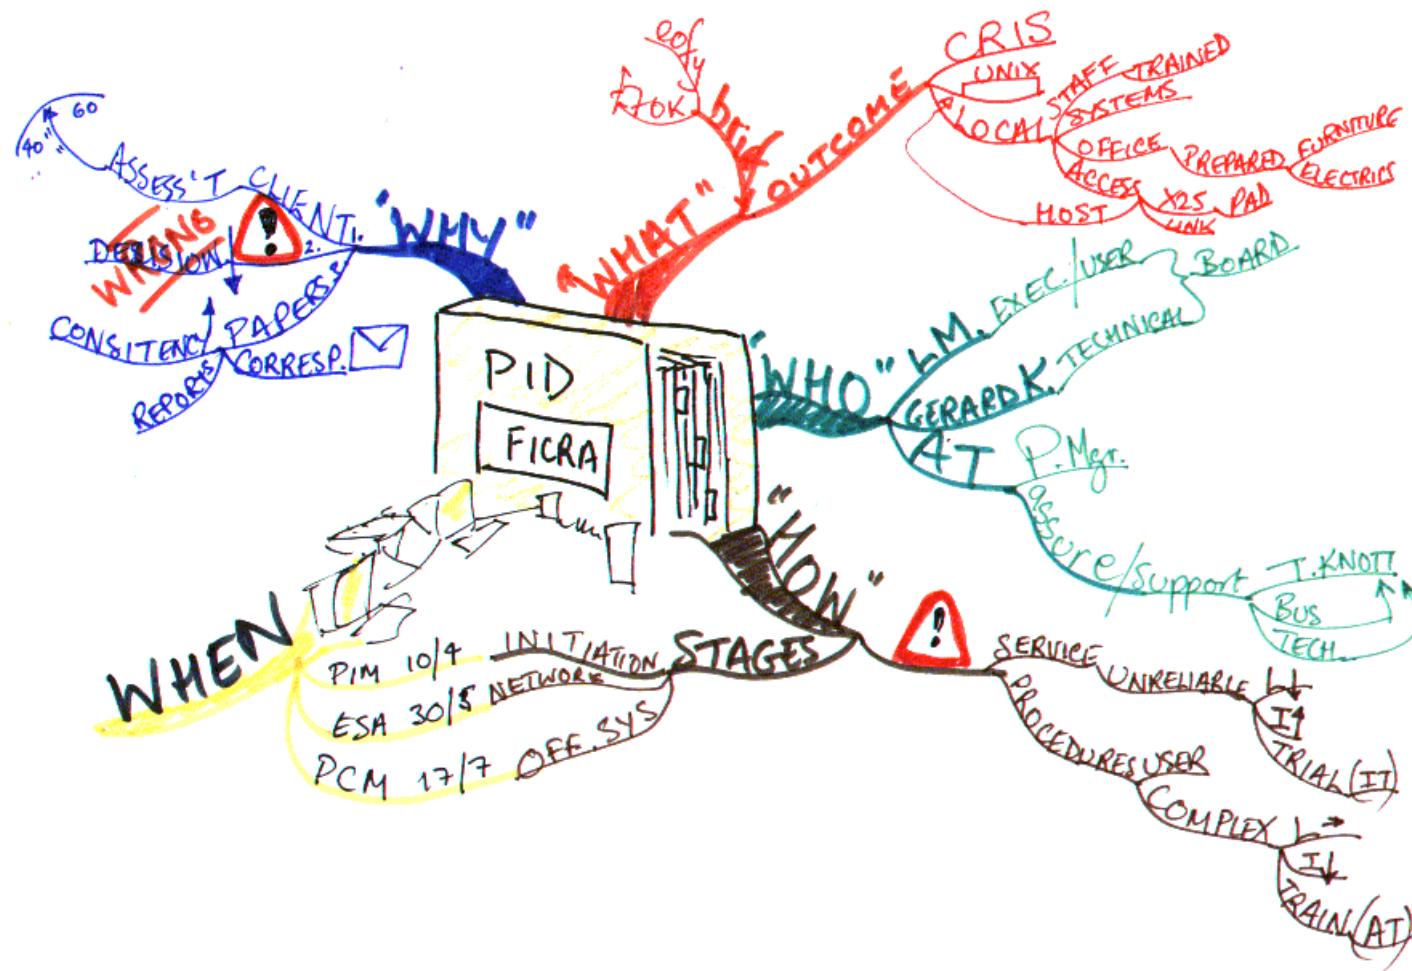 PID
FICRA
"WHY"
CLIENT 1.
ASSESS'T
40"
60
2.
WRONG
PAPERS 3
CONSITENCY
REPORTS
CORRESP.
"WHAT"
brief
eofy
70K
OUTCOME
CRIS
UNIX
LOCAL
STAFF TRAINED
SYSTEMS
OFFICE PREPARED
FURNITURE
ELECTRICS
ACCESS
HOST
X25 PAD
LINK
"WHO"
L.M. EXEC./USER
BOARD
GERARD K. TECHNICAL
AT
P.Mgr.
assure/support
T. KNOTT
BUS
TECH
"HOW"
STAGES
INITIATION
NETWORK
OFF. SYS
!
SERVICE
UNRELIABLE
L↓
I↑
TRIAL (IT)
PROCEDURES USER
COMPLEX
L→
I↓
TRAIN (AT)
WHEN
PIM 10/4
ESA 30/5
PCM 17/7